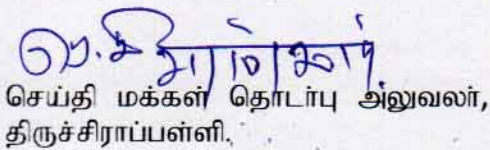 செய்தி மக்கள் தொடர்பு அலுவலர்,
திருச்சிராப்பள்ளி.